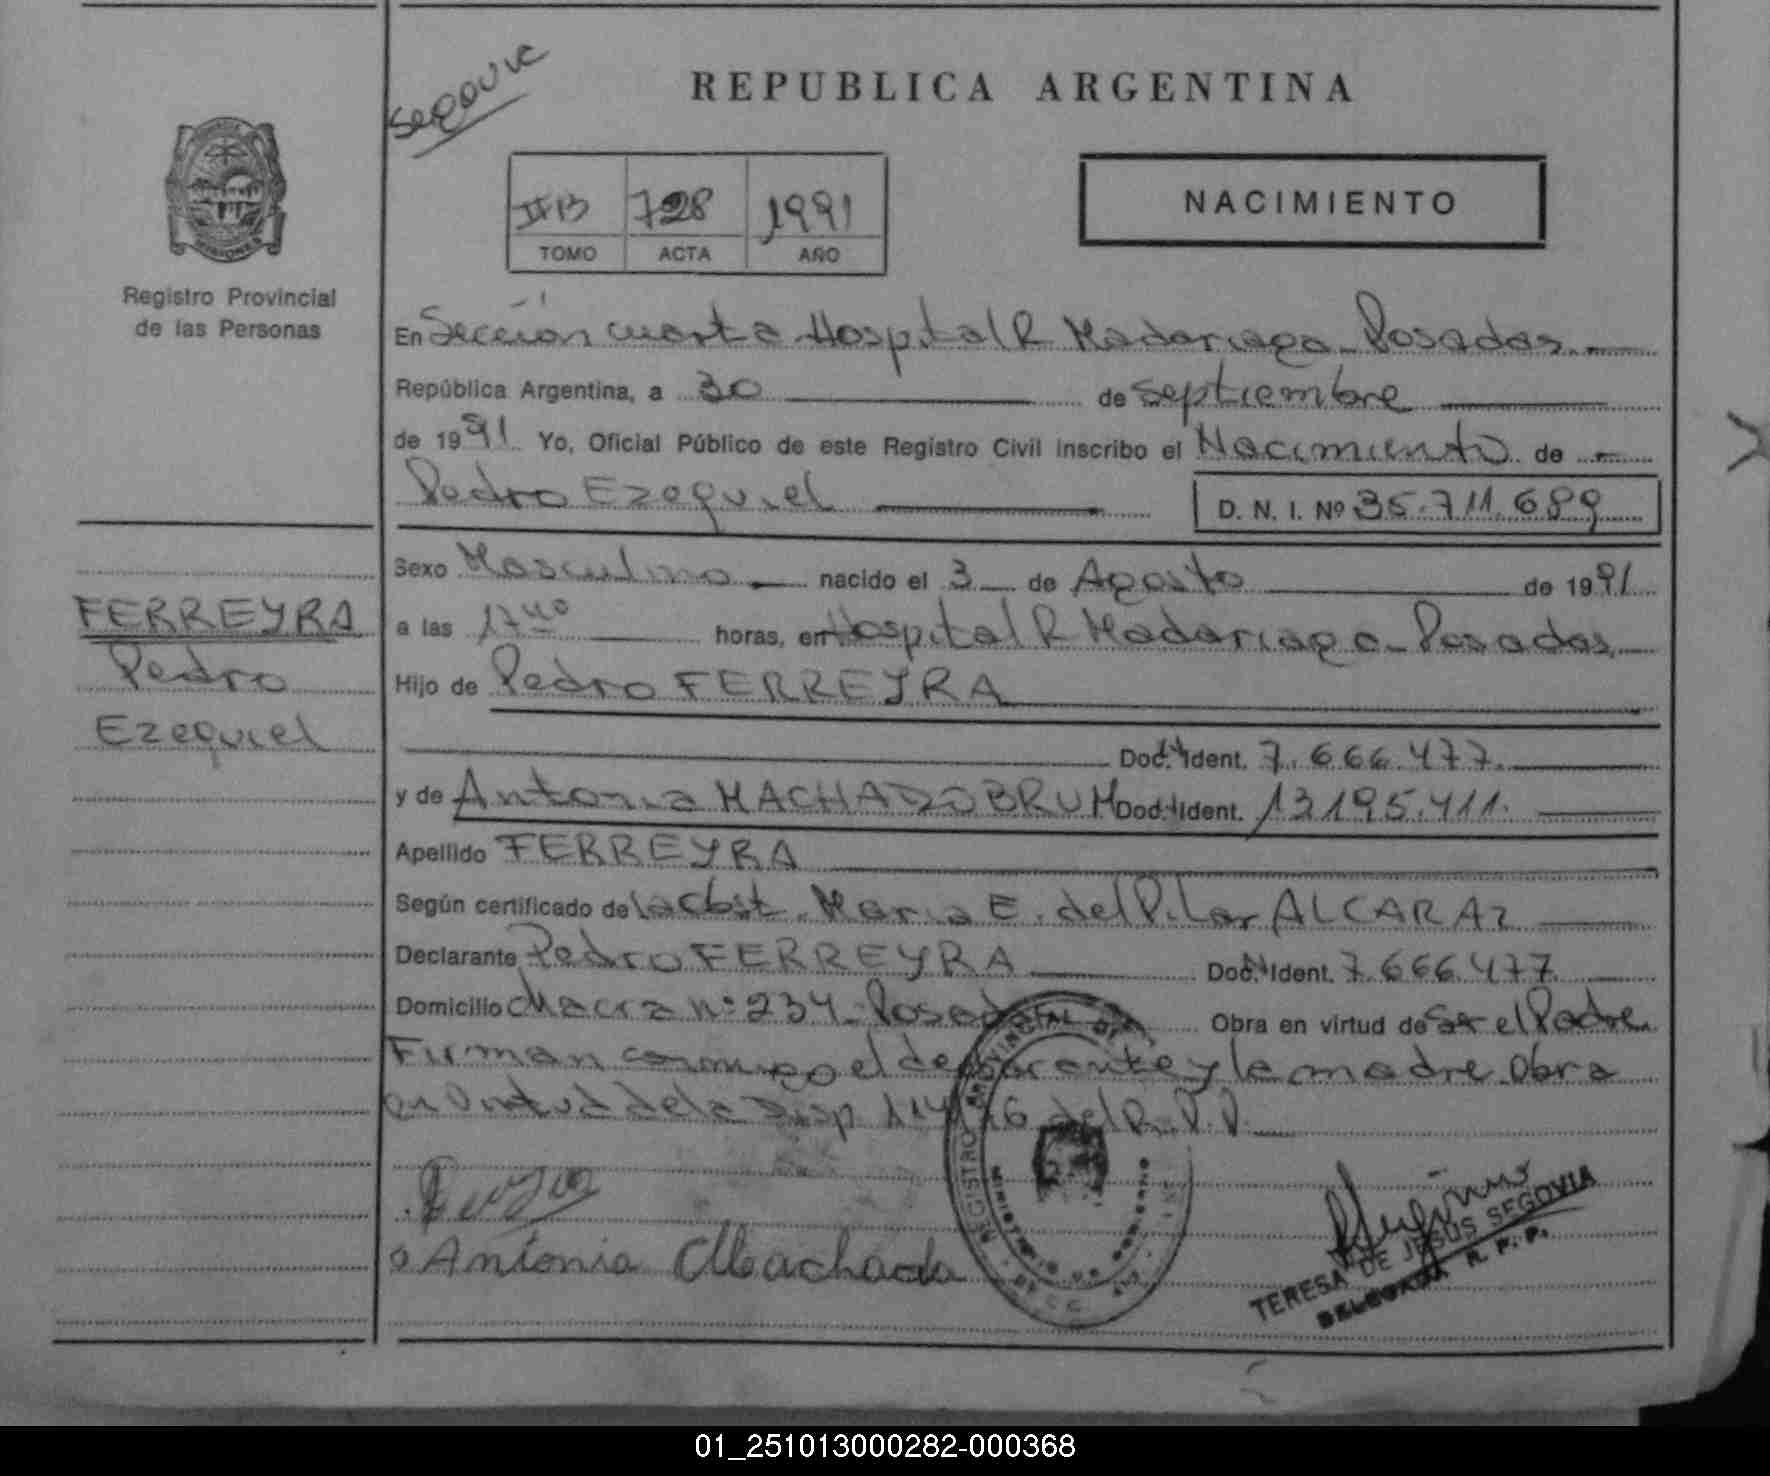 Segovia
REPUBLICA ARGENTINA
728 1991
TOMO ACTA AÑO
NACIMIENTO
MISIONES
Registro Provincial
de las Personas
En Sección cuarta Hospital R Madariaga - Posadas.
República Argentina, a 30 de septiembre
de 1991. Yo, Oficial Público de este Registro Civil inscribo el Nacimiento de
Pedro Ezequiel D. N. I. Nº 35.711.689
Sexo Masculino nacido el 3 de Agosto de 1991
a las 17 40 horas, en Hospital R Madariaga - Posadas.
Hijo de Pedro FERREYRA
Doc. Ident. 7.666.477.
y de Antonia MACHADO BRUM Doc. Ident. 13195.411.
Apellido FERREYRA
Según certificado de la Obst. Maria E. del Pilar ALCARAZ
Declarante Pedro FERREYRA Doc. Ident. 7.666.477
Domicilio Chacra nº 234 - Posadas Obra en virtud de Ser el Padre
Firman conmigo el declarante y la madre Obra
en Virtud de la Disp 114/76 del R.P.P.
FERREYRA
Pedro
Ezequiel
Antonia Machado
REGISTRO PROVINCIAL DE
MINISTERIO DE GOBIERNO
TERESA DE JESUS SEGOVIA
DELEGADA R. P. P.
01_251013000282-000368